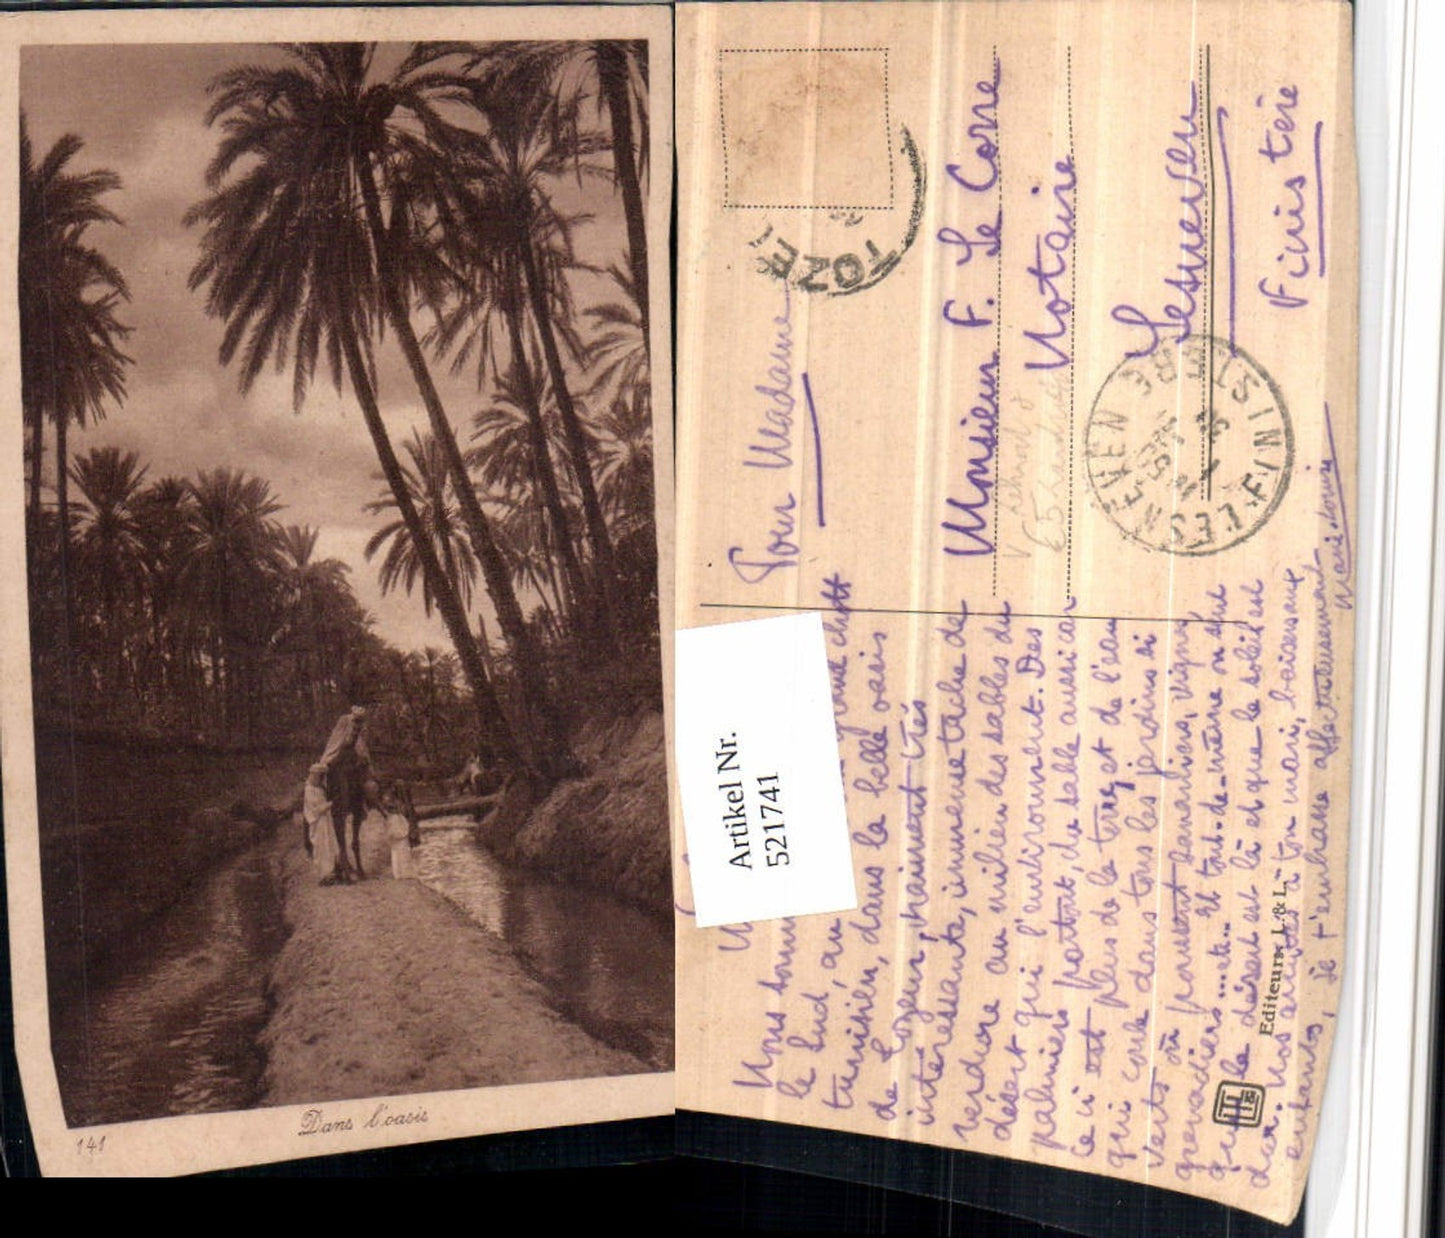 141
Dans l'oasis
Artikel Nr.
521741
TOZE
Pour Madame
Monsieur F. Le Corre
Notaire
Lesneven
Finistère
LESNEVEN
FINISTERE
Nous
le Sud, au chott
tunisien, dans la belle oasis
de Tozeur, vraiment très
intéressante, immense tache de
verdure au milieu des sables du
désert qui l'environnent. Des
palmiers partout, du sable aussi car
ce n'est plus de la terre, et de l'eau
qui coule dans tous les jardins si
verts où poussent bananiers, vignes
grenadiers... etc... Et tout-de-même on sent
que le désert est là et que le soleil est
dur. Nos amitiés à ton mari, baisers aux
enfants, je t'embrasse affectueusement
Marie Louise
Editeurs L. & L.